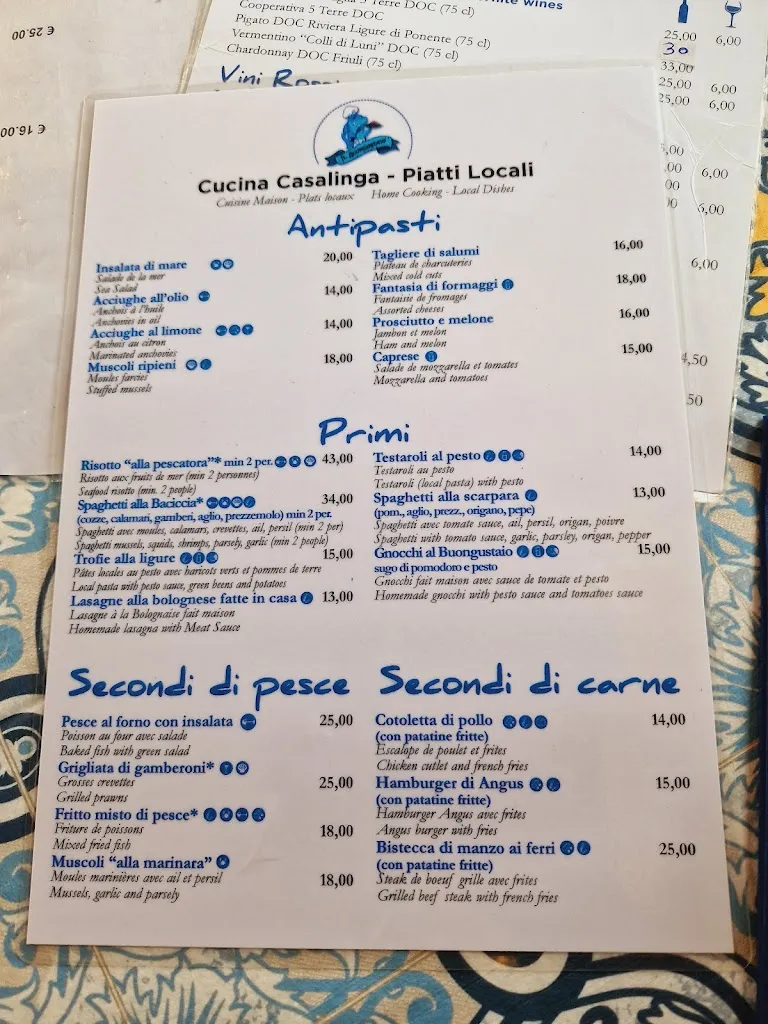 € 25.00
€ 16.00
5 Terre DOC (75 cl)
Cooperativa 5 Terre DOC
Pigato DOC Riviera Ligure di Ponente (75 cl)
Vermentino "Colli di Luni" DOC (75 cl)
Chardonnay DOC Friuli (75 cl)
Wines
25,00 6,00
30
33,00
25,00 6,00
25,00 6,00
6,00
6,00
6,00
4,50
Vini
Cucina Casalinga - Piatti Locali
Cuisine Maison - Plats locaux Home Cooking - Local Dishes
Antipasti
Insalata di mare 20,00
Salade de la mer
Sea Salad
Acciughe all'olio 14,00
Anchois à l'huile
Anchovies in oil
Acciughe al limone 14,00
Anchois au citron
Marinated anchovies
Muscoli ripieni 18,00
Moules farcies
Stuffed mussels
Tagliere di salumi 16,00
Plateau de charcuteries
Mixed cold cuts
Fantasia di formaggi 18,00
Fantaisie de fromages
Assorted cheeses
Prosciutto e melone 16,00
Jambon et melon
Ham and melon
Caprese 15,00
Salade de mozzarella et tomates
Mozzarella and tomatoes
Primi
Risotto "alla pescatora"* min 2 per. 43,00
Risotto aux fruits de mer (min 2 personnes)
Seafood risotto (min. 2 people)
Spaghetti alla Baciccia* 34,00
(cozze, calamari, gamberi, aglio, prezzemolo) min 2 per.
Spaghetti avec moules, calamars, crevettes, ail, persil (min 2 per)
Spaghetti mussels, squids, shrimps, parsely, garlic (min 2 people)
Trofie alla ligure 15,00
Pâtes locales au pesto avec haricots verts et pommes de terre
Local pasta with pesto sauce, green beens and potatoes
Lasagne alla bolognese fatte in casa 13,00
Lasagne à la Bolognaise fait maison
Homemade lasagna with Meat Sauce
Testaroli al pesto 14,00
Testaroli au pesto
Testaroli (local pasta) with pesto
Spaghetti alla scarpara 13,00
(pom., aglio, prezz., origano, pepe)
Spaghetti avec tomate sauce, ail, persil, origan, poivre
Spaghetti with tomato sauce, garlic, parsley, origan, pepper
Gnocchi al Buongustaio 15,00
sugo di pomodoro e pesto
Gnocchi fait maison avec sauce de tomate et pesto
Homemade gnocchi with pesto sauce and tomatoes sauce
Secondi di pesce
Pesce al forno con insalata 25,00
Poisson au four avec salade
Baked fish with green salad
Grigliata di gamberoni*
Grosses crevettes 25,00
Grilled prawns
Fritto misto di pesce*
Friture de poissons 18,00
Mixed fried fish
Muscoli "alla marinara"
Moules marinières avec ail et persil 18,00
Mussels, garlic and parsely
Secondi di carne
Cotoletta di pollo 14,00
(con patatine fritte)
Escalope de poulet et frites
Chicken cutlet and french fries
Hamburger di Angus 15,00
(con patatine fritte)
Hamburger Angus avec frites
Angus burger with fries
Bistecca di manzo ai ferri 25,00
(con patatine fritte)
Steak de boeuf grille avec frites
Grilled beef steak with french fries